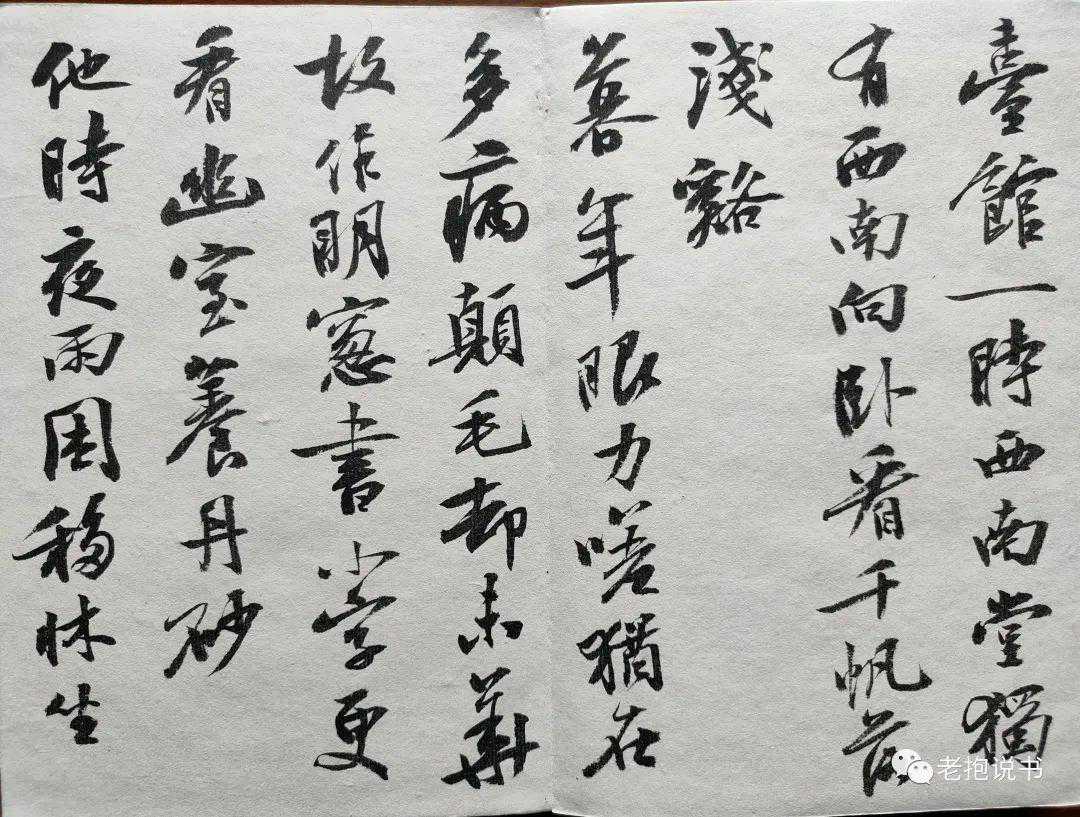 臺館一時西南堂獨
有西南向卧看千帆落
淺谿
暮年眼力嗟猶在
多病顛毛却未華
故作明窻書小字更
看幽室養丹砂
他時夜雨困移牀坐
老抱说书